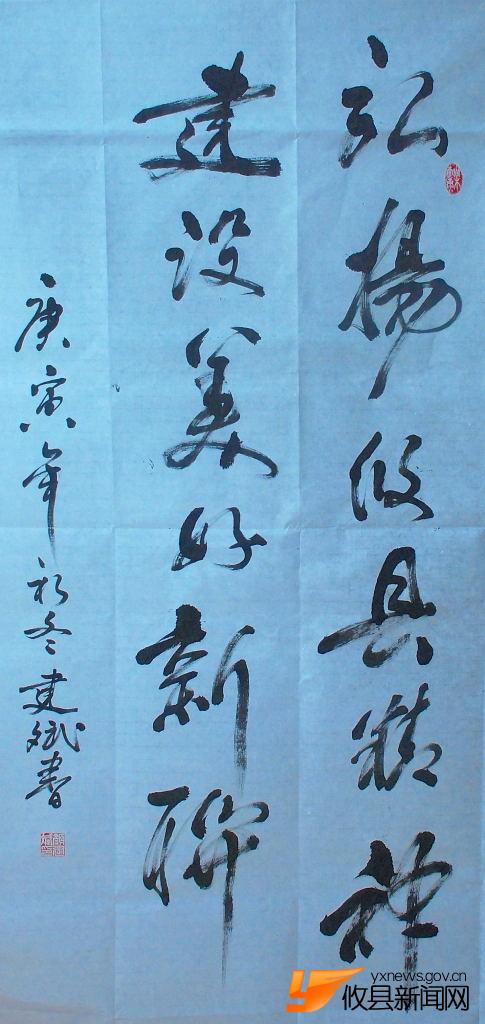 弘揚攸县精神
建设美好新聯
庚寅年初冬建斌書
yxnews.gov.cn
攸县新闻网